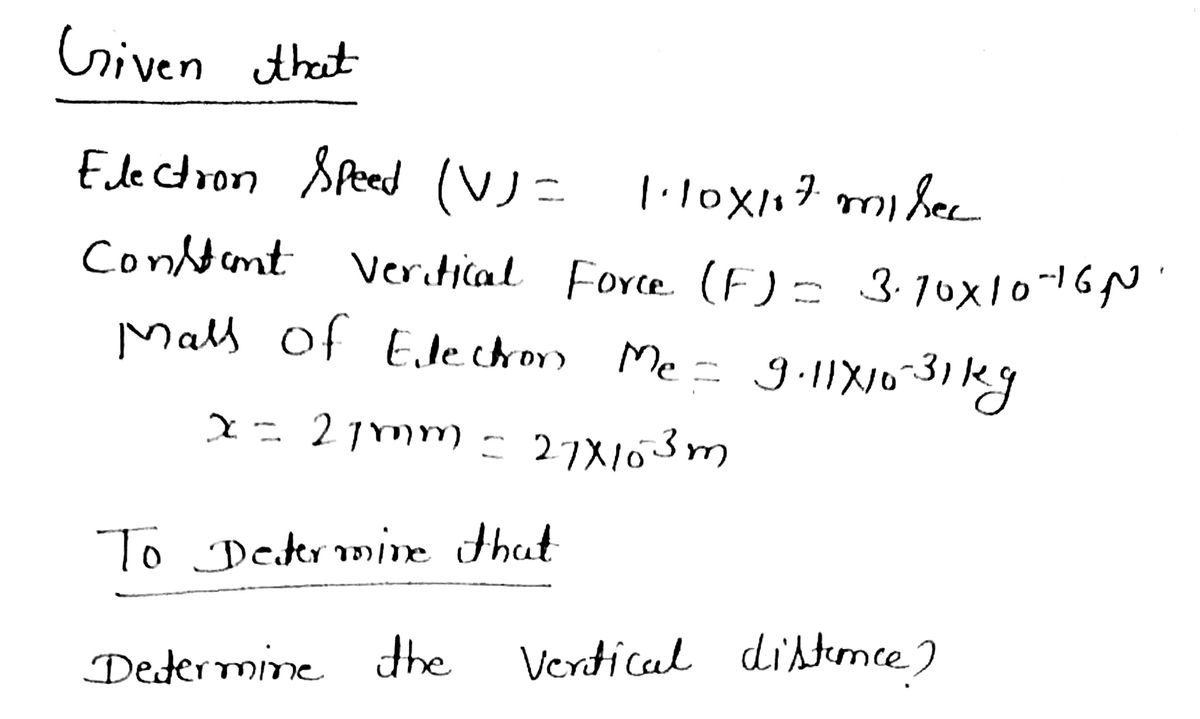 Given that
Electron Speed (V) = 1.10X10⁷ m/sec
Constant Vertical Force (F) = 3.70X10⁻¹⁶N
Mass of Electron Me = 9.11X10⁻³¹kg
x = 27mm = 27X10⁻³m
To Determine that
Determine the Vertical distance?